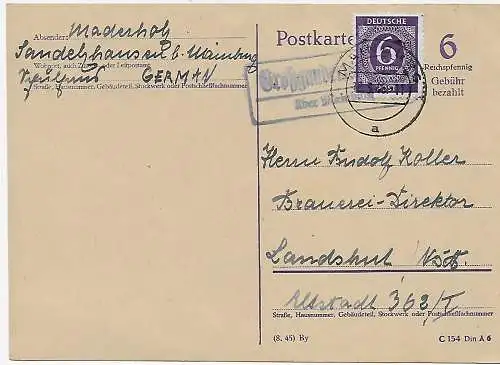 Absender: Maderholz
Sandelzhausen b. Mainburg
Wohnort, auch Zustell- oder Leitpostamt
GERMAN
Straße, Hausnummer, Gebäudeteil, Stockwerk oder Postschließfachnummer
Postkarte
DEUTSCHE
6
PFENNIG
POST
6
Reichspfennig
Gebühr
bezahlt
über
a
Herrn Rudolf Koller
Brauerei-Direktor
Landshut Ndb.
Altstadt 362/I
Straße, Hausnummer, Gebäudeteil, Stockwerk oder Postschließfachnummer
(8. 45) By
C 154 Din A 6